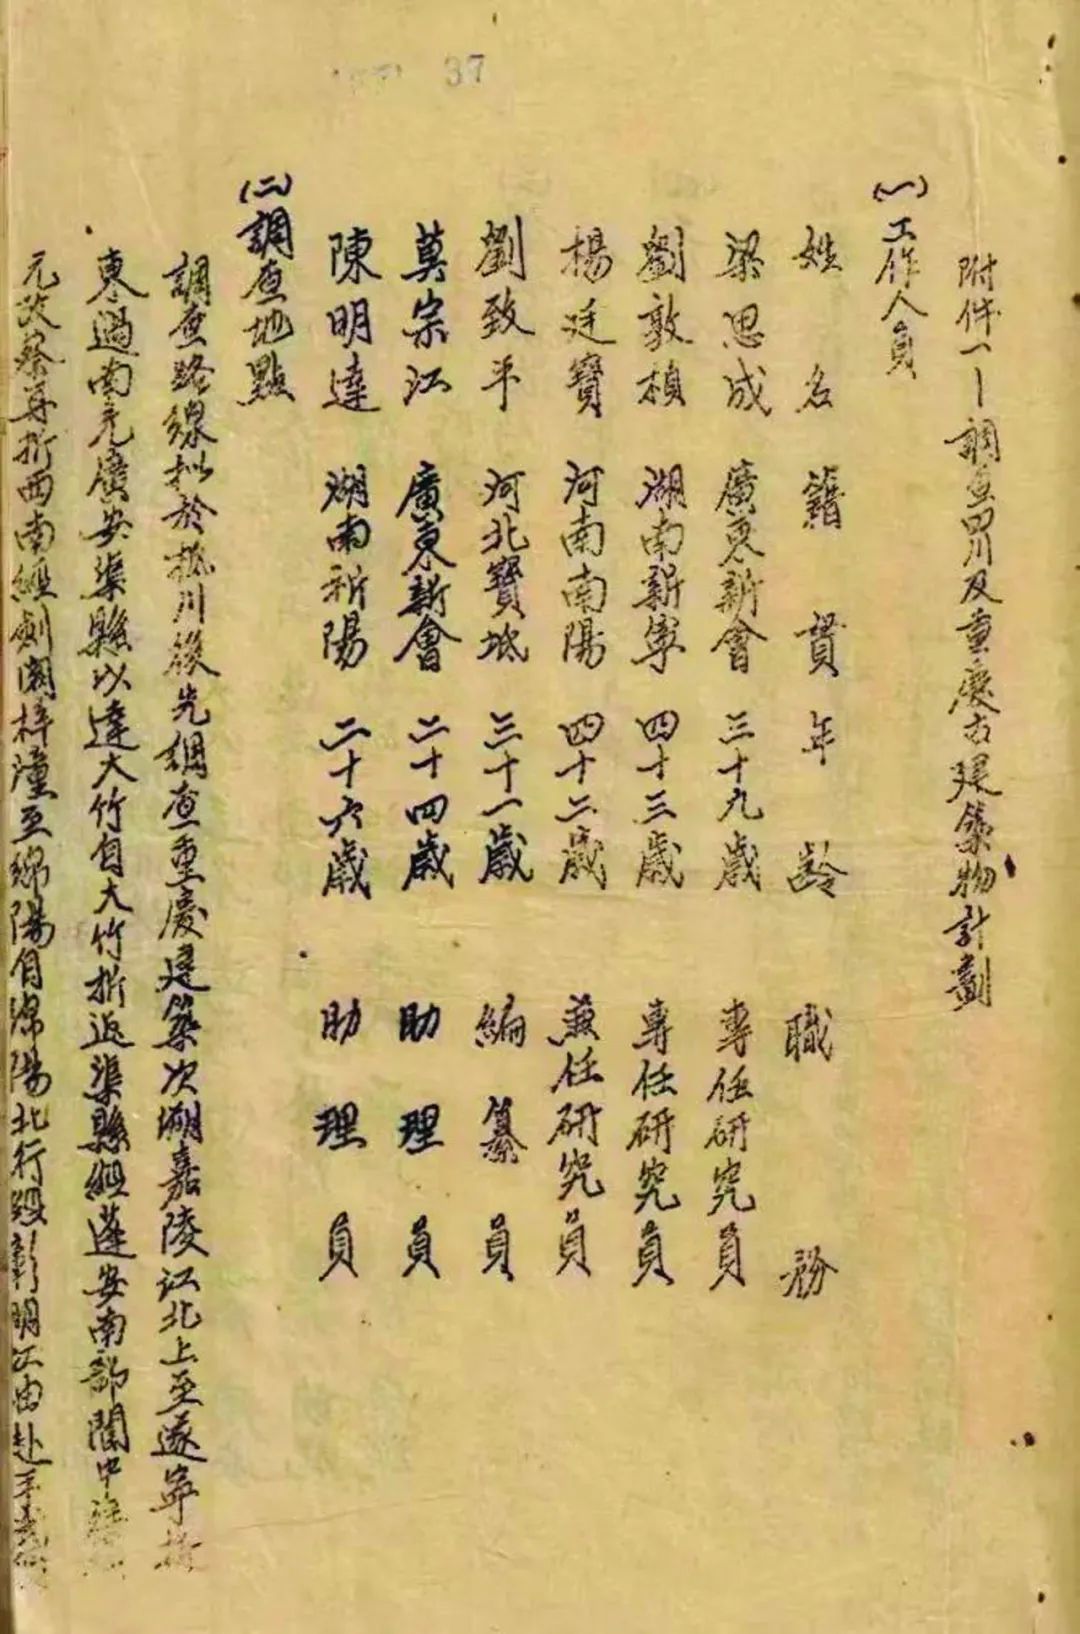 37
附件一—調查四川及重慶古建築物計劃
(一)工作人員
姓名 籍貫 年齡 職務
梁思成 廣東新會 三十九歲 專任研究員
劉敦楨 湖南新寧 四十三歲 專任研究員
楊廷寶 河南南陽 四十二歲 兼任研究員
劉致平 河北寶坻 三十一歲 編纂員
莫宗江 廣東新會 二十四歲 助理員
陳明達 湖南祈陽 二十六歲 助理員
(二)調查地點
調查路線擬於抵川後先調查重慶建築次溯嘉陵江北上至遂寧折
東過南充廣安渠縣以達大竹自大竹折返渠縣經蓬安南部閬中
元次 折西南經劍閣梓潼至綿陽自綿陽北行 彰明江由赴平武